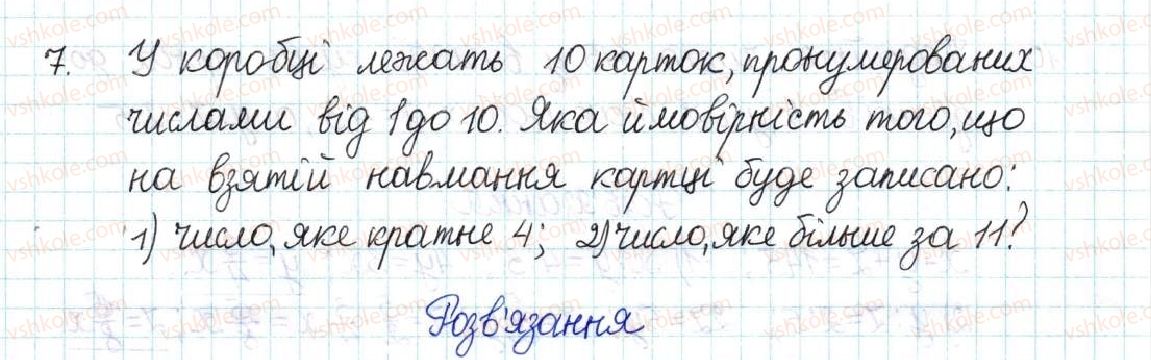 7. У коробці лежать 10 карток, пронумерованих
числами від 1 до 10. Яка ймовірність того, що
на взятій навмання картці буде записано:
1) число, яке кратне 4; 2) число, яке більше за 11?
Розв'язання